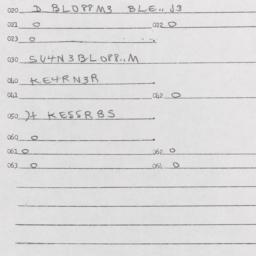 020 D BLOPPM3 BLE.. J3
021 0 022 0
023 0
030 SU4N3BLOPP..M
040 KE4RN3R
041 042 0
050 )4 KESSRBS
060 0
061 0 062 0
063 0 061 0